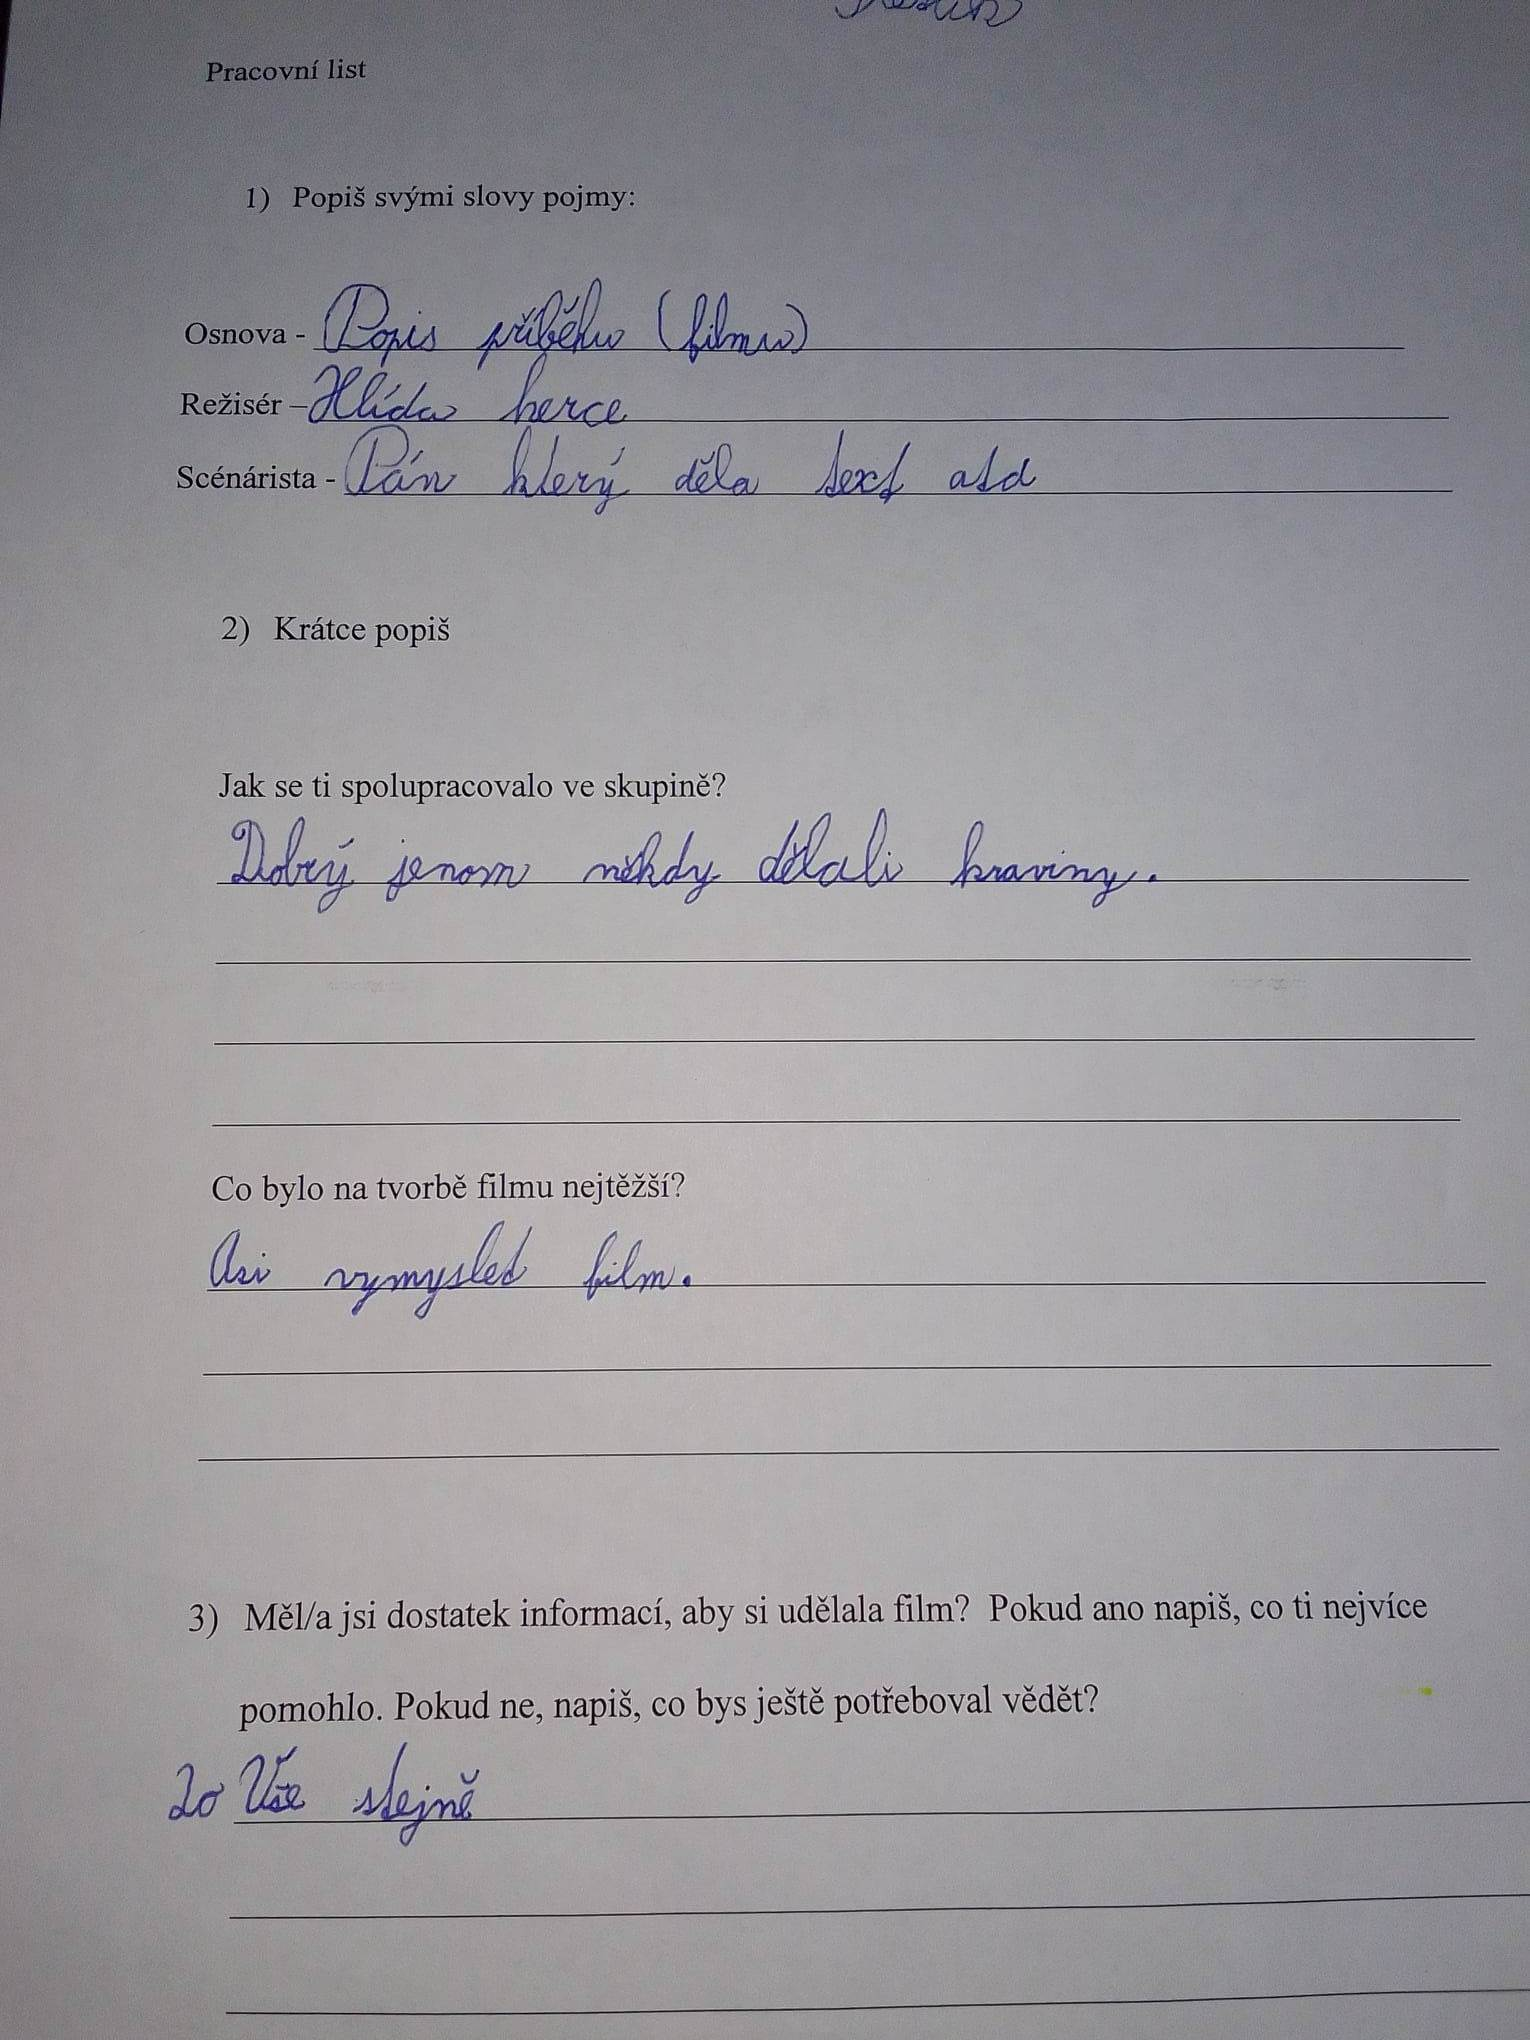 Pracovní list
1) Popiš svými slovy pojmy:
Osnova - Popis příběhu (filmu)
Režisér – Hlída herce
Scénárista - Pán který děla text atd
2) Krátce popiš
Jak se ti spolupracovalo ve skupině?
Dobrý jenom někdy dělali kraviny.
Co bylo na tvorbě filmu nejtěžší?
Asi vymyslet film.
3) Měl/a jsi dostatek informací, aby si udělala film? Pokud ano napiš, co ti nejvíce
pomohlo. Pokud ne, napiš, co bys ještě potřeboval vědět?
Jo Vše stejně